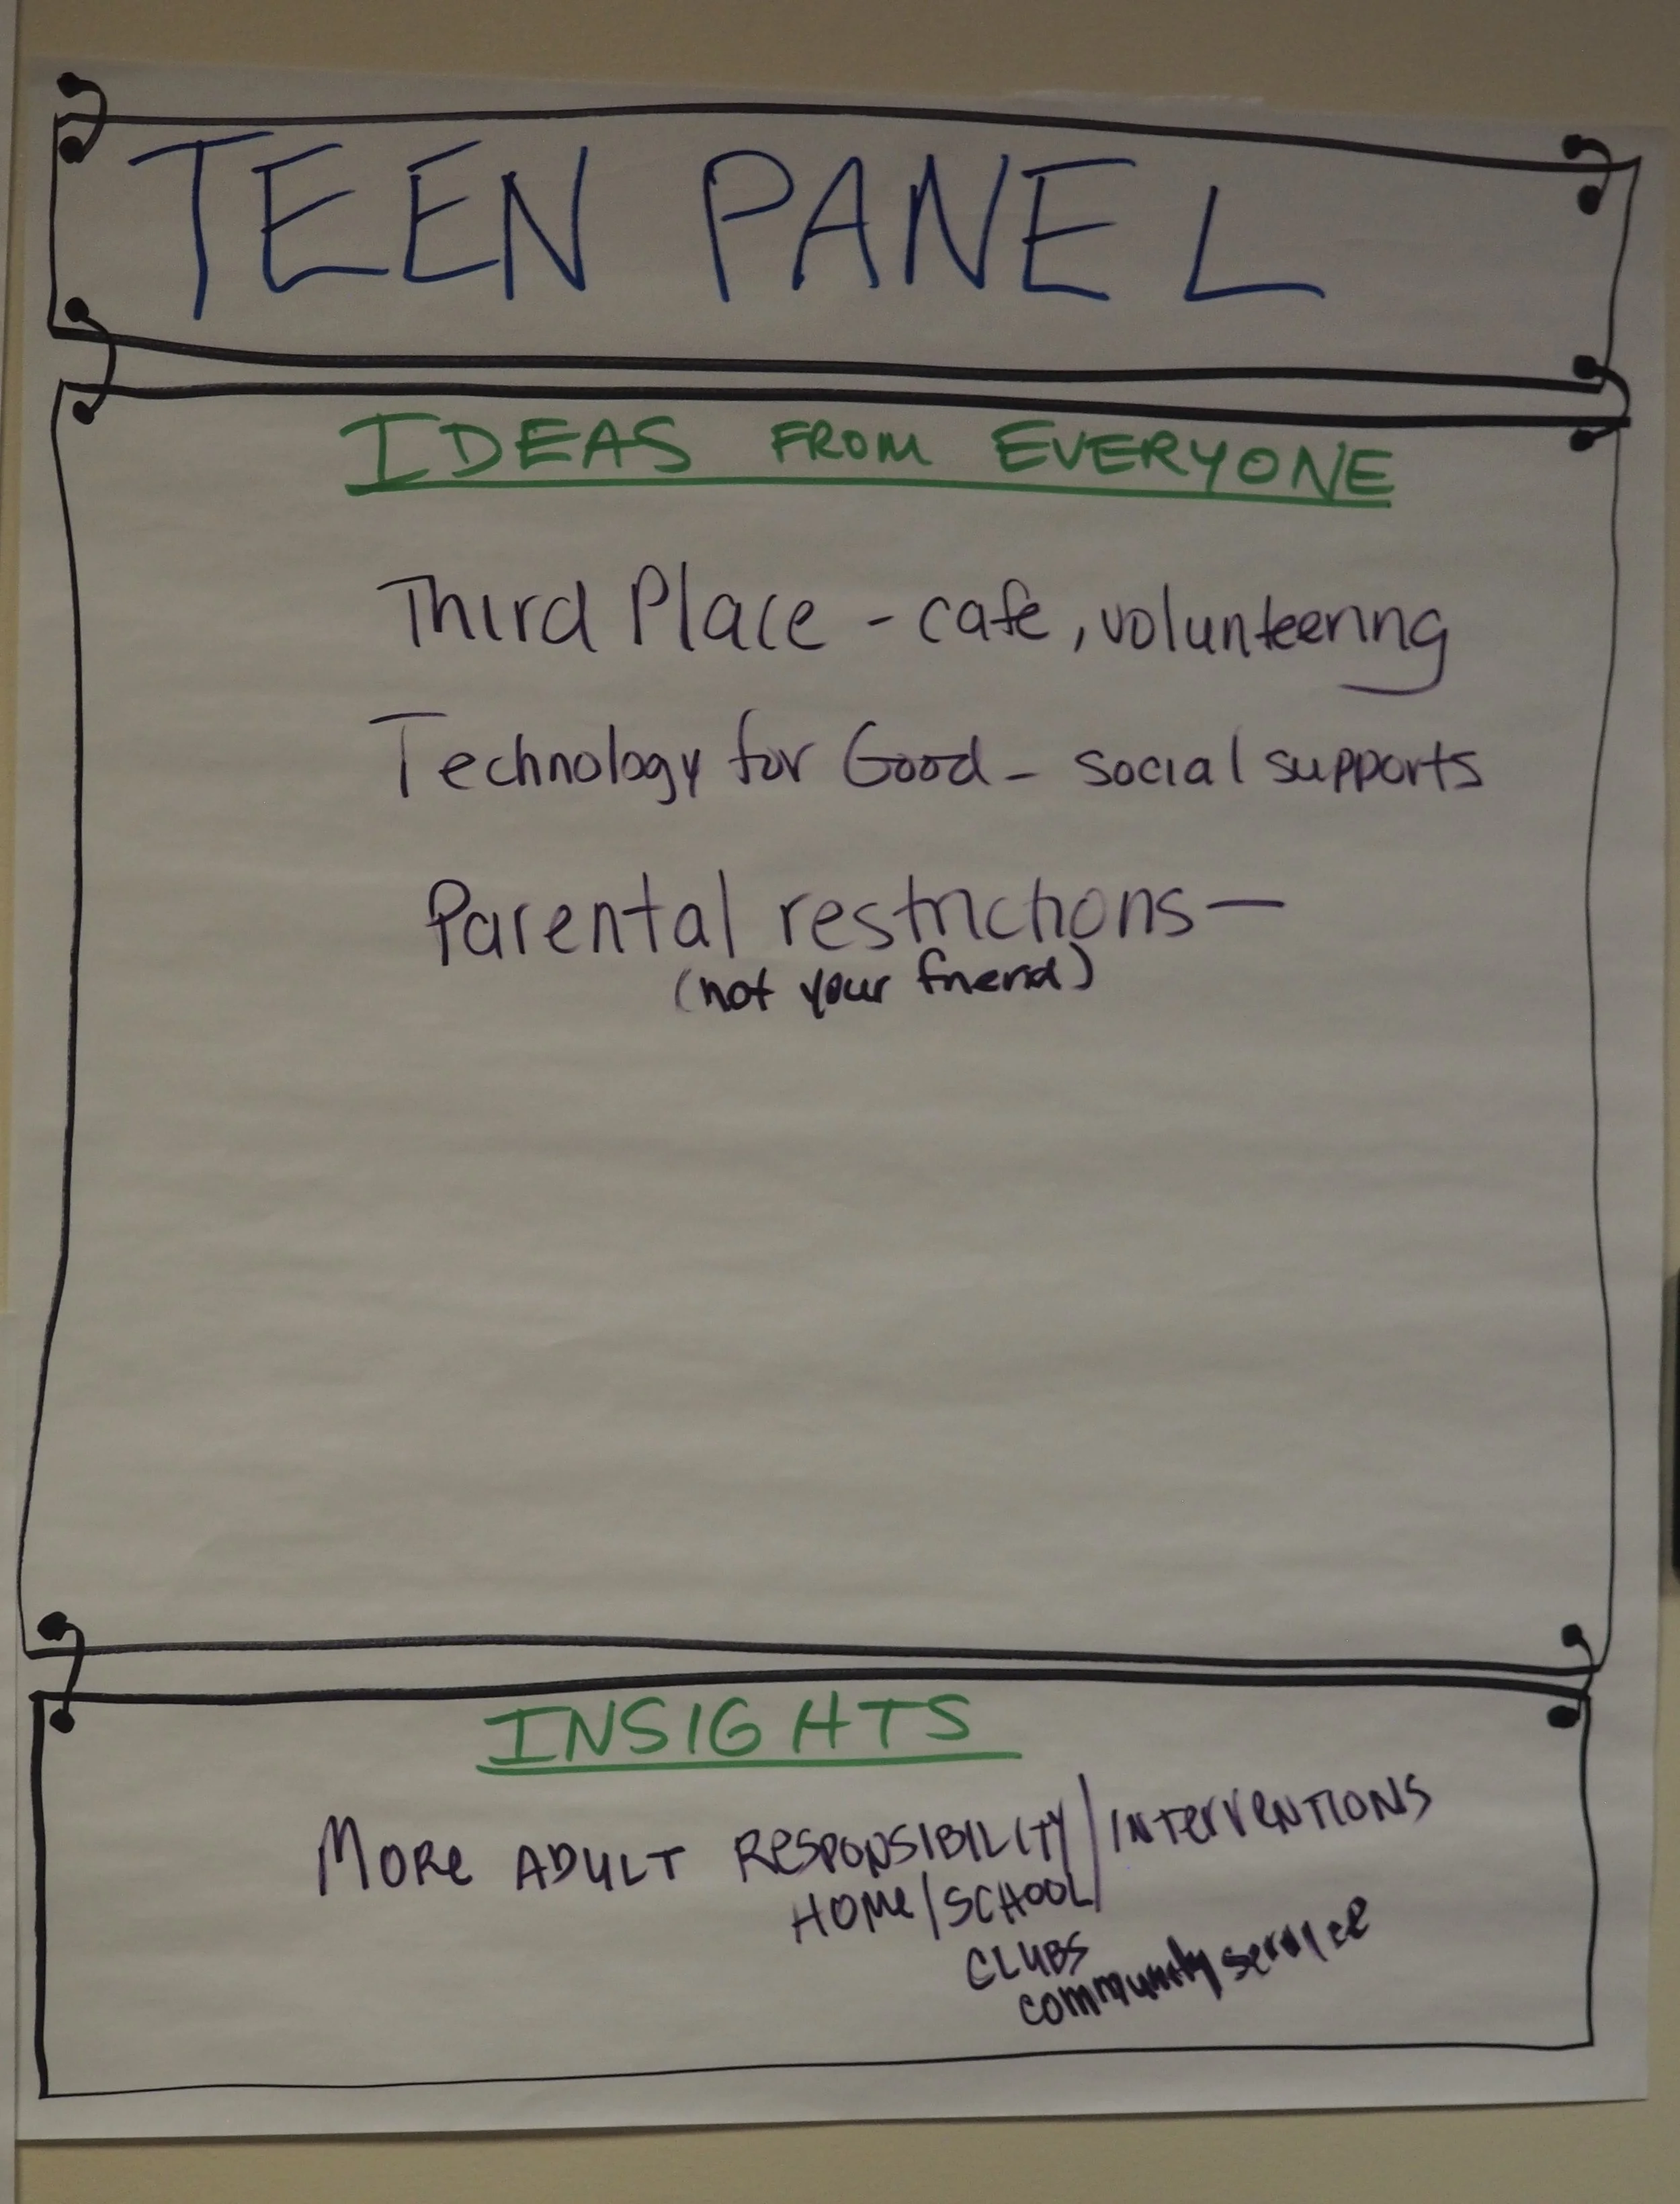 TEEN PANEL
IDEAS FROM EVERYONE
Third Place - cafe, volunteering
Technology for Good - social supports
Parental restrictions —
(not your friend)
INSIGHTS
MORE ADULT RESPONSIBILITY/INTERVENTIONS
HOME/SCHOOL/
CLUBS
community service